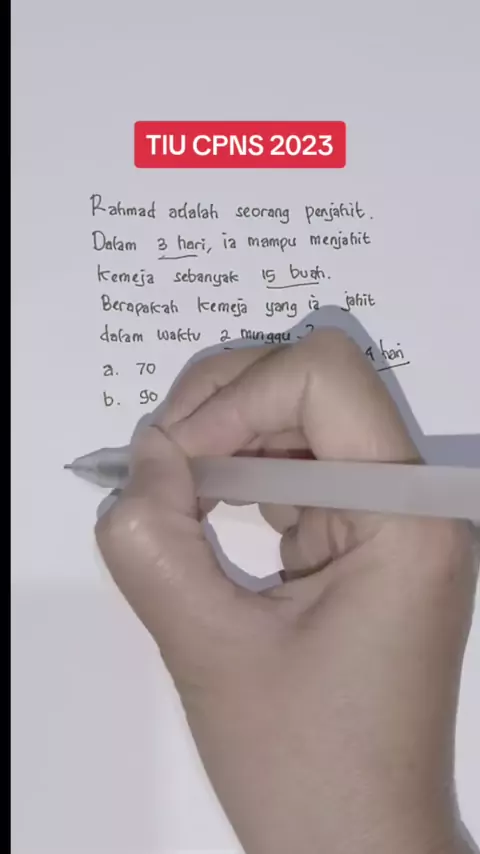 TIU CPNS 2023
Rahmad adalah seorang penjahit.
Dalam 3 hari, ia mampu menjahit
kemeja sebanyak 15 buah.
Berapakah kemeja yang ia jahit
dalam waktu 2 minggu ?
hari
a. 70
b. 90